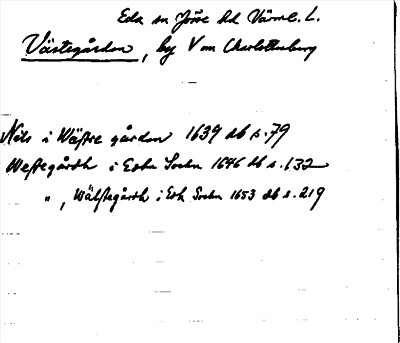 Eda sn Jösse hd Värml. L.
Västegården, by V om Charlottenberg
Nils i Wästre gården 1639 db s. 79
Westegårdh i Edha Sochn 1646 db s. 132
" , Wästegårdh i Edh Sochn 1653 db s. 219